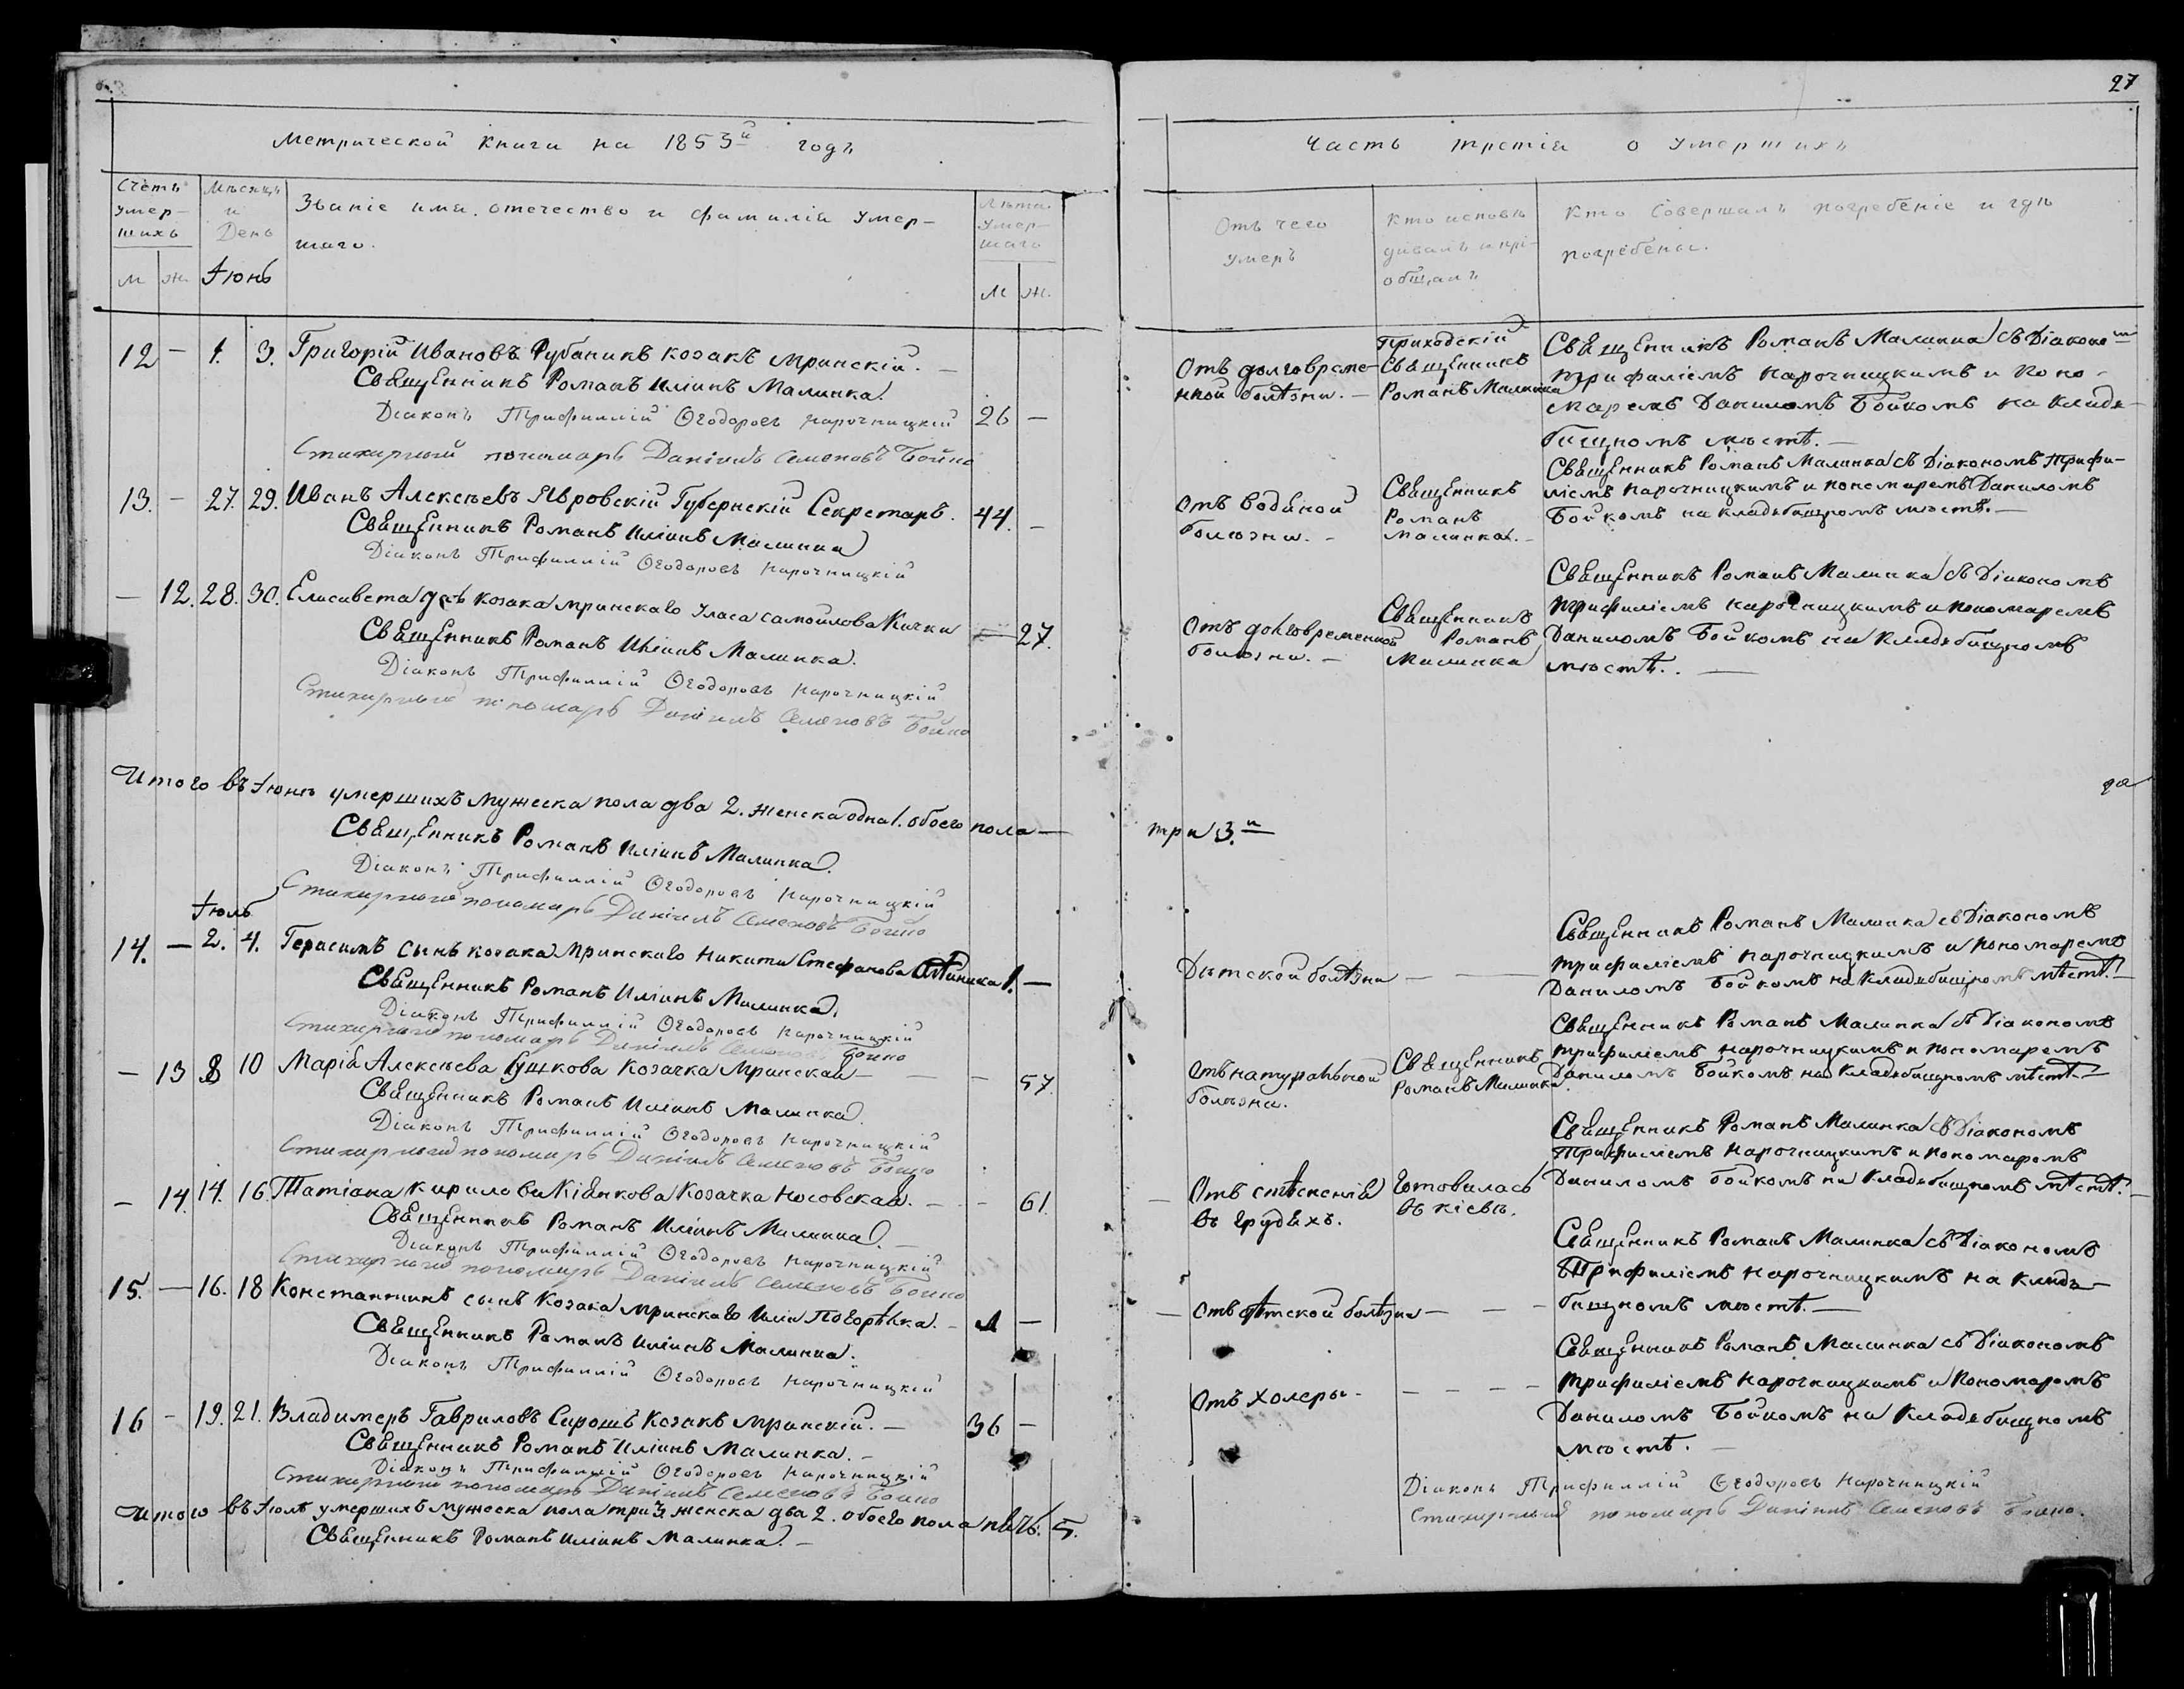 27
Метрической книги на 1853й годъ
Часть третія о умершихъ
Счетъ умер-шихъ
Мѣсяцъ и День
Званіе имя, отечество и фамилія умер-
шаго.
Лѣта умер-шаго
м ж. Іюнь
М Ж.
Отъ чего умеръ
Кто исповѣ
дывалъ и прі-
общалъ
Кто совершалъ погребеніе и гдѣ
погребены.
12 — 1. 3. Григорій Ивановъ Рубаникъ козакъ мринскій. —
Священникъ Романъ Иліинъ Малинка.
Діаконъ Трифиллій Ѳеодоровъ Нарочницкій 26 —
Стихирный пономарь Даніилъ Семеновъ Бойко
Отъ долговреме-
нной болѣзни. —
Приходскій
Священникъ
Романъ Малинка
Священникъ Романъ Малинка съ Діаконо м
Трифиліемъ Нарочницкимъ и Поно-
маремъ Даниломъ Бойкомъ на кладъ-
бищномъ мюстѣ. —
13. — 27. 29. Иванъ Алексѣевъ Явровскій Губернскій Секретарь. 44. —
Священникъ Романъ Иліинъ Малинка
Діаконъ Трифиллій Ѳеодоровъ Нарочницкій
Отъ водяной
болюзни. —
Священникъ
Романъ
Малинка. —
Священникъ Романъ Малинка съ Діакономъ Трифи-
ліемъ Нарочницкимъ и пономаремъ Даниломъ
Бойкомъ на кладъбищномъ мюстѣ. —
— 12. 28. 30. Елисавета дочь козака мринскаго Уласа Самойлова Кички — 27.
Священникъ Романъ Иліинъ Малинка.
Діаконъ Трифиллій Ѳеодоровъ Нарочницкій
Стихирный пономарь Даніилъ Семеновъ Бойко
Отъ долговременной
болюзни. —
Священникъ
Романъ
Малинка
Священникъ Романъ Малинка съ Діакономъ
Трифиліемъ Нарочницкимъ и пономаремъ
Даниломъ Бойкомъ на кладъбищномъ
мюстѣ. —
Итого въ Іюнѣ умершихъ мужеска пола два 2. женска одна 1. обоего пола — три 3.и
Священникъ Романъ Иліинъ Малинка.
Діаконъ Трифиллій Ѳеодоровъ Нарочницкій
Стихирный пономарь Даніилъ Семеновъ Бойко
Іюль
14. — 2. 4. Герасимъ сынъ козака мринскаго Никиты Стефанова 1. —
Священникъ Романъ Иліинъ Малинка.
Діаконъ Трифиллій Ѳеодоровъ Нарочницкій
Стихирный пономарь Даніилъ Семеновъ Бойко
Дѣтской болѣзни —
Священникъ Романъ Малинка съ Діакономъ
Трифиліемъ Нарочницкимъ и Пономаремъ
Даниломъ Бойкомъ на кладъбищномъ мѣстѣ. —
— 13 8 10 Марія Алексѣева Гушкова козачка мринская — — 57.
Священникъ Романъ Иліинъ Малинка.
Діаконъ Трифиллій Ѳеодоровъ Нарочницкій
Стихирный пономарь Даніилъ Семеновъ Бойко
Отъ натуральной
болѣзни.
Священникъ
Романъ Малинка
Священникъ Романъ Малинка съ Діакономъ
Трифиліемъ Нарочницкимъ и Пономаремъ
Даниломъ Бойкомъ на кладъбищномъ мѣстѣ. —
— 14. 14. 16. Татіана Кирилова Кіяикова козачка Носовская. — — 61.
Священникъ Романъ Иліинъ Малинка. —
Діаконъ Трифиллій Ѳеодоровъ Нарочницкій
Стихирный пономарь Даніилъ Семеновъ Бойко
Отъ стѣсненія
въ грудяхъ.
Готовилась
въ Кіевѣ.
Священникъ Романъ Малинка съ Діакономъ
Трифиліемъ Нарочницкимъ и Пономаремъ
Даниломъ Бойкомъ на кладъбищномъ мѣстѣ. —
15. — 16. 18 Константинъ сынъ козака мринскаго Иліи Погорѣлка. — 1 —
Священникъ Романъ Иліинъ Малинка.
Діаконъ Трифиллій Ѳеодоровъ Нарочницкій
— Отъ дѣтской болѣзни — — —
Священникъ Романъ Малинка съ Діакономъ
Трифиліемъ Нарочницкимъ на кладъ-
бищномъ мюстѣ. —
16 — 19. 21. Владимеръ Гавриловъ Сирошъ козакъ мринскій. — 36 —
Священникъ Романъ Иліинъ Малинка. —
Діаконъ Трифиллій Ѳеодоровъ Нарочницкій
Стихирный пономарь Даніилъ Семеновъ Бойко
Отъ холеры — — — —
Священникъ Романъ Малинка съ Діакономъ
Трифиліемъ Нарочницкимъ и Пономаремъ
Даниломъ Бойкомъ на кладъбищномъ
мюстѣ. —
Итого въ Іюлѣ умершихъ мужеска пола три 3 женска два 2. обоего пола пять. 5.
Священникъ Романъ Иліинъ Малинка. —
Діаконъ Трифиллій Ѳеодоровъ Нарочницкій
Стихирный пономарь Даніилъ Семеновъ Бойко.